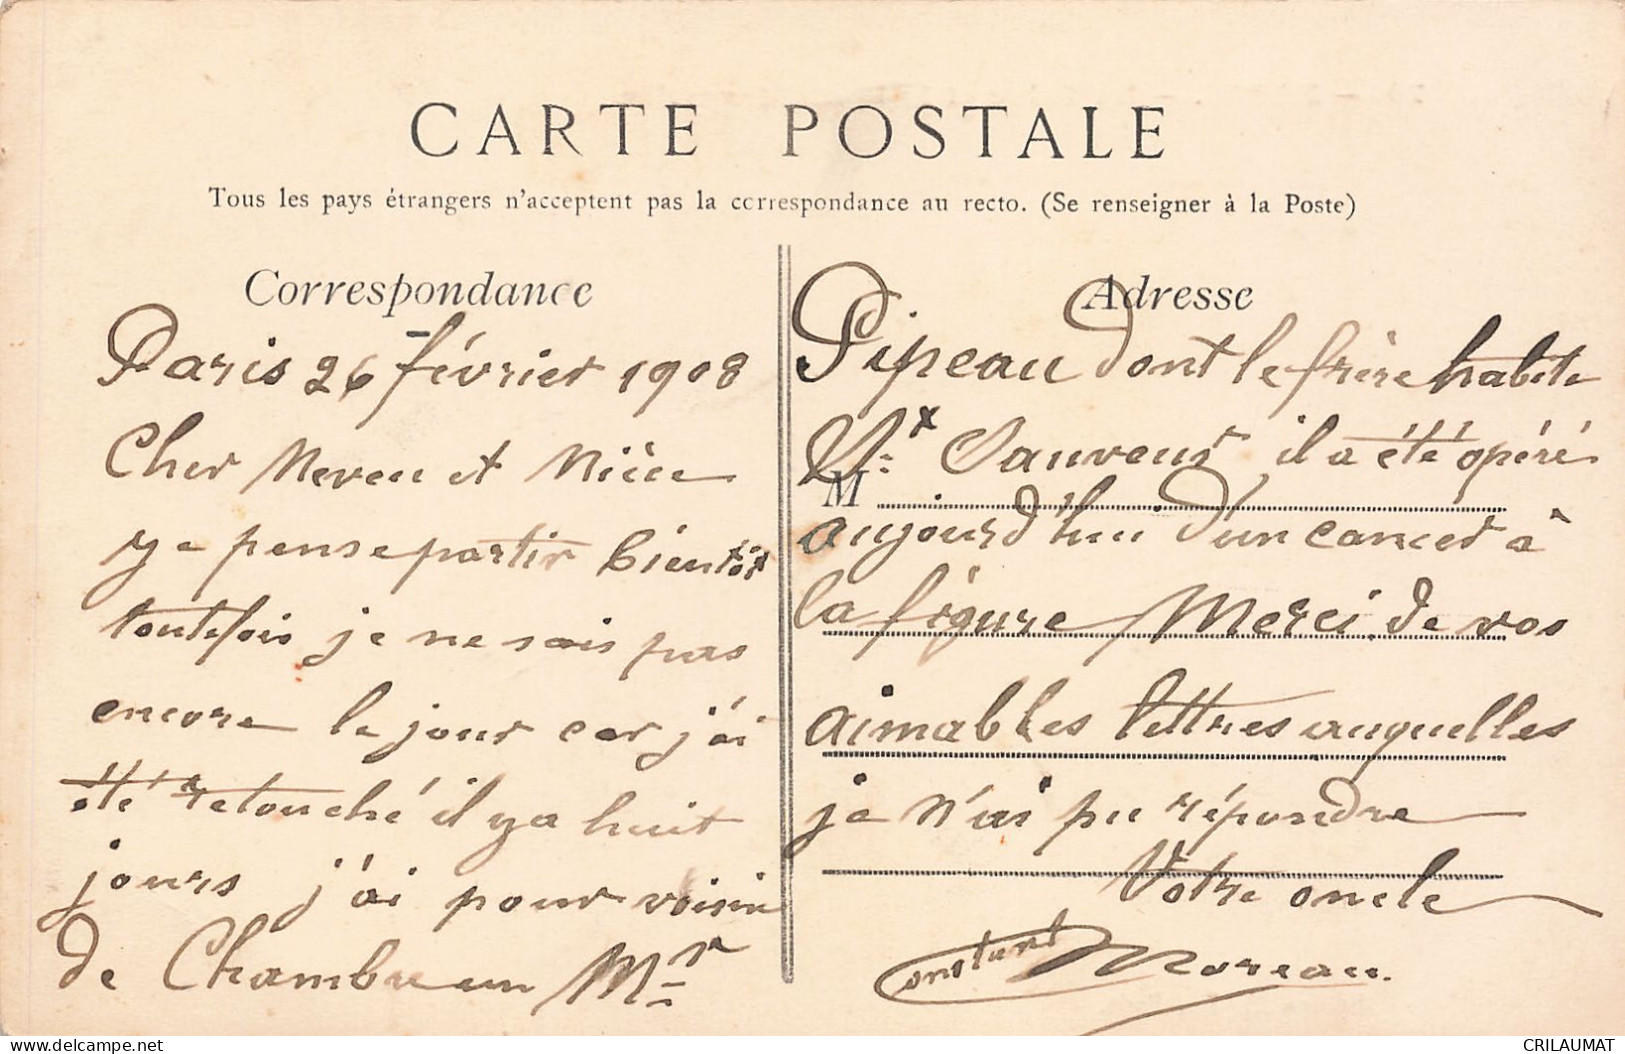 CARTE POSTALE
Tous les pays étrangers n'acceptent pas la correspondance au recto. (Se renseigner à la Poste)
Correspondance
Paris 26 février 1908
Cher Neveu et Nièce
pense partir bientôt
toutefois je ne sais pas
encore le jour car j'ai
été retouché il y a huit
jours j'ai pour voisin
de Chambre un Mr
Adresse
Pipeau dont le frère habite
St Sauveur il a été opéré
M
aujourd'hui d'un cancer à
la figure Merci de vos
aimables lettres auquelles
je n'ai pu répondre
Votre oncle
Constant Moreau.
delcampe.net
CRILAUMAT